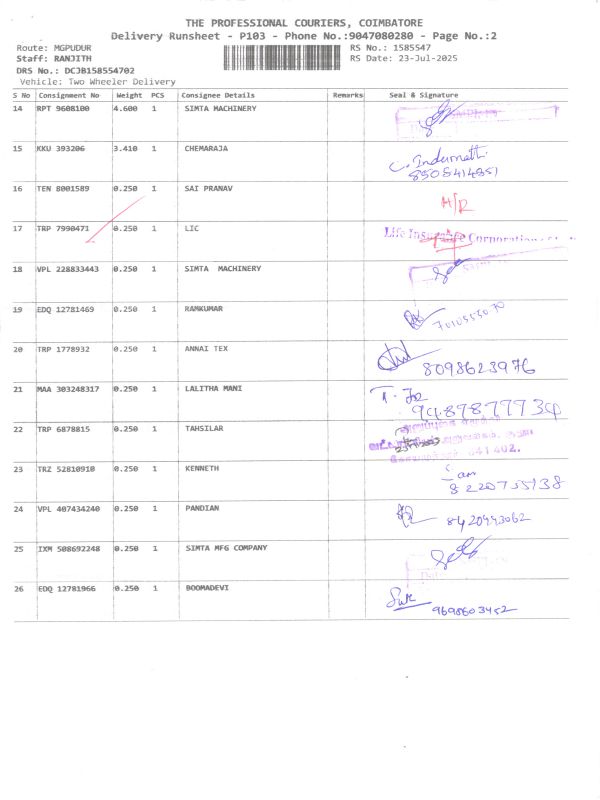 THE PROFESSIONAL COURIERS, COIMBATORE
Delivery Runsheet - P103 - Phone No.:9047080280 - Page No.:2
Route: MGPUDUR RS No.: 1585547
Staff: RANJITH RS Date: 23-Jul-2025
DRS No.: DCJB158554702
Vehicle: Two Wheeler Delivery
S No Consignment No Weight PCS Consignee Details Remarks Seal & Signature
14 RPT 9608100 4.600 1 SIMTA MACHINERY
15 KKU 393206 3.410 1 CHEMARAJA
8505414851
16 TEN 8001589 0.250 1 SAI PRANAV H/R
17 TRP 7990471 0.250 1 LIC Life Insurance Corporation
18 VPL 228833443 0.250 1 SIMTA MACHINERY
19 EDQ 12781469 0.250 1 RAMKUMAR
20 TRP 1778932 0.250 1 ANNAI TEX
8098623976
21 MAA 303248317 0.250 1 LALITHA MANI
9487877934
22 TRP 6878815 0.250 1 TAHSILAR
641 402.
23 TRZ 52810910 0.250 1 KENNETH
8220755138
24 VPL 407434240 0.250 1 PANDIAN 8420493062
25 IXM 508692248 0.250 1 SIMTA MFG COMPANY
26 EDQ 12781966 0.250 1 BOOMADEVI
9698603452